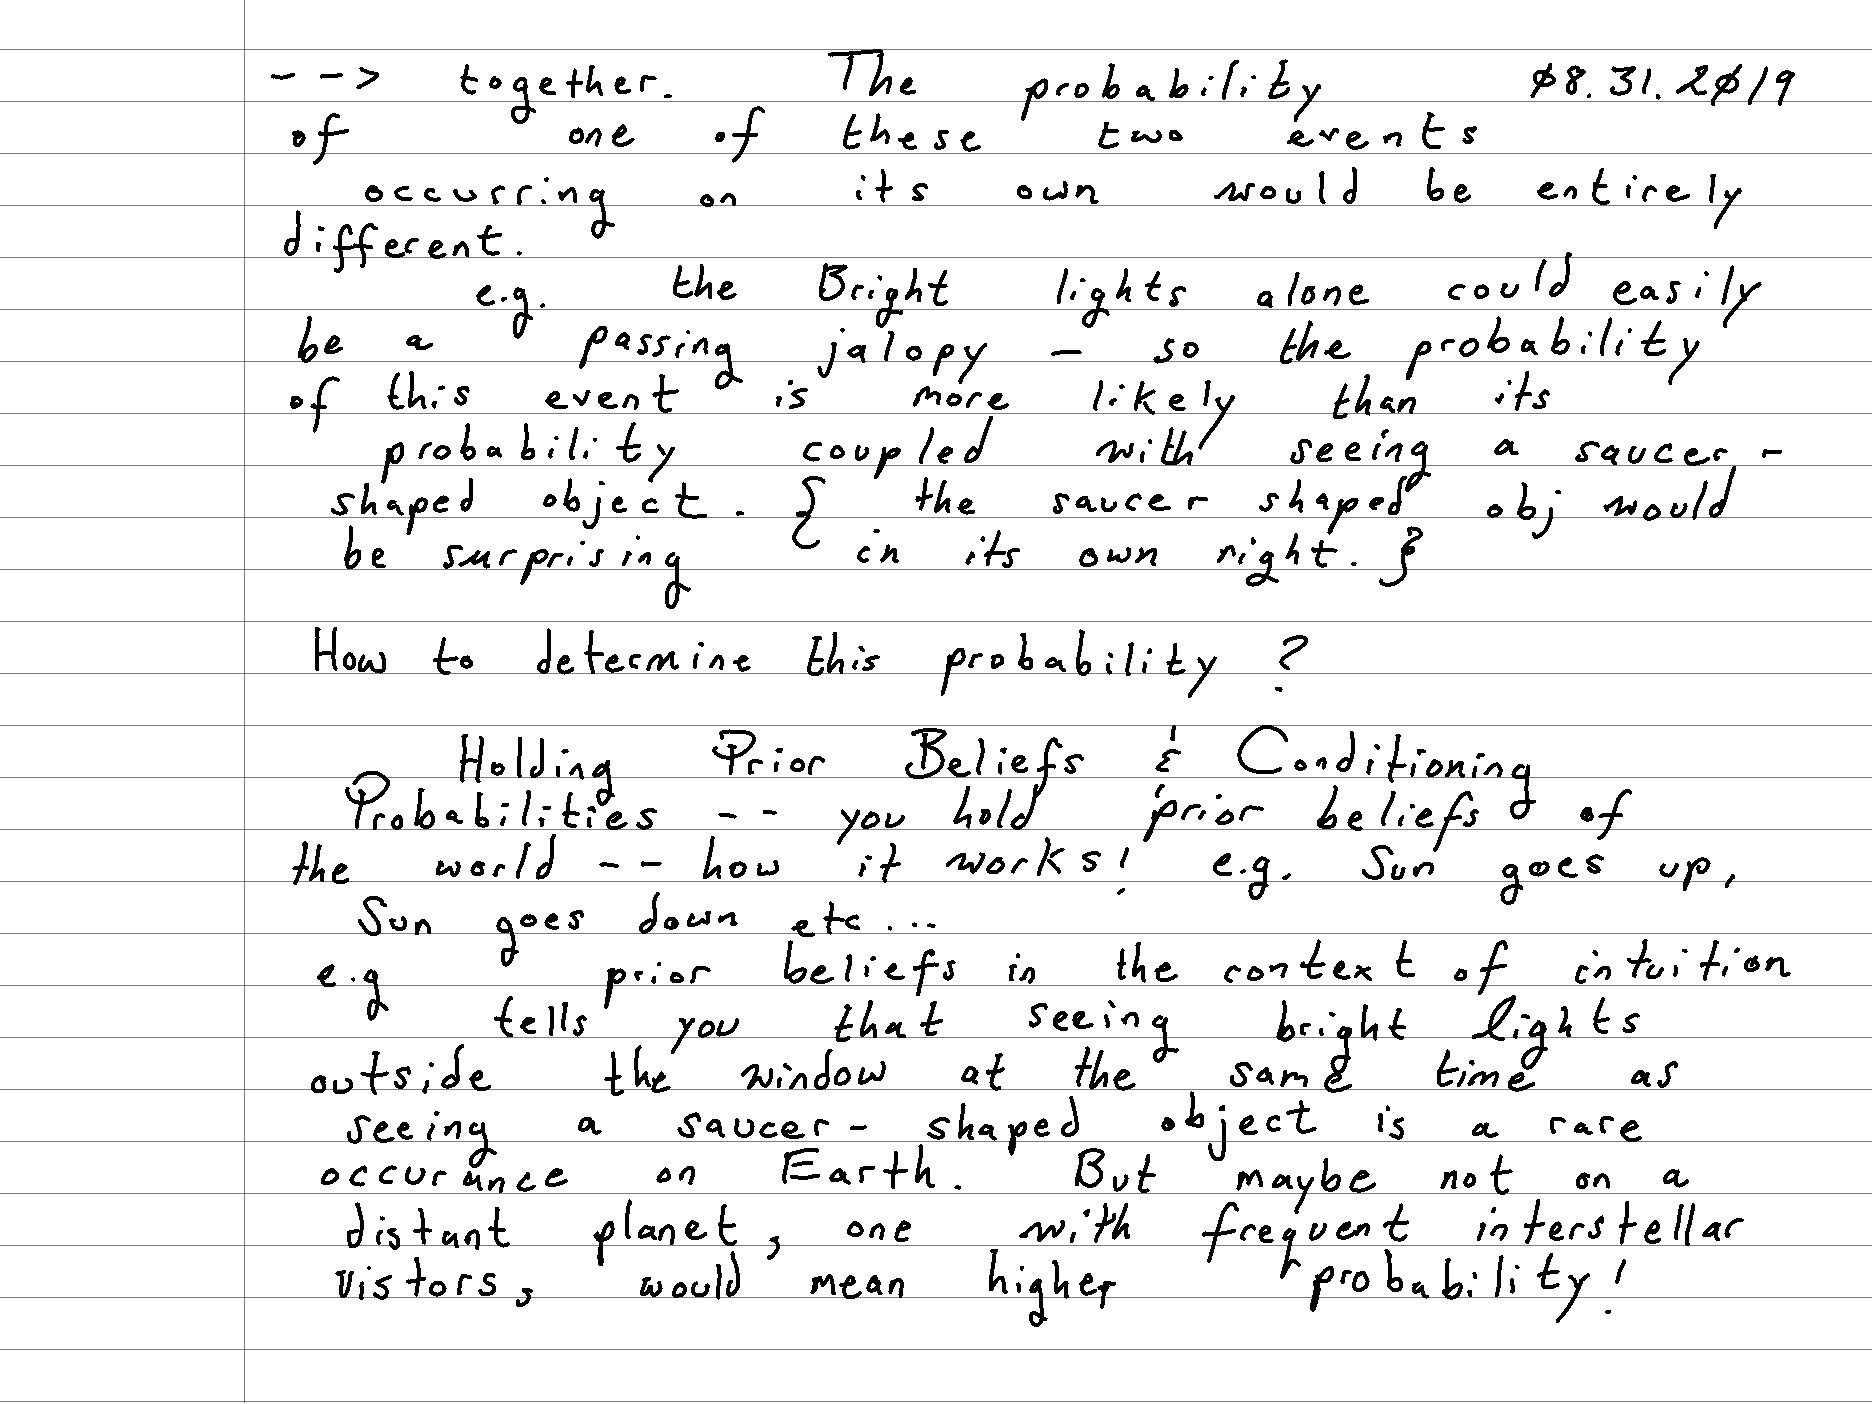 --> together. The probability 08.31.2019
of one of these two events
occurring on its own would be entirely
different.
e.g. the Bright lights alone could easily
be a passing jalopy – so the probability
of this event is more likely than its
probability coupled with seeing a saucer-
shaped object. { the saucer shaped obj would
be surprising in its own right. }
How to determine this probability ?
Holding Prior Beliefs & Conditioning
Probabilities -- you hold prior beliefs of
the world -- how it works! e.g. Sun goes up,
Sun goes down etc...
e.g prior beliefs in the context of intuition
tells you that seeing bright lights
outside the window at the same time as
seeing a saucer- shaped object is a rare
occurance on Earth. But maybe not on a
distant planet, one with frequent interstellar
vistors, would mean higher probability!